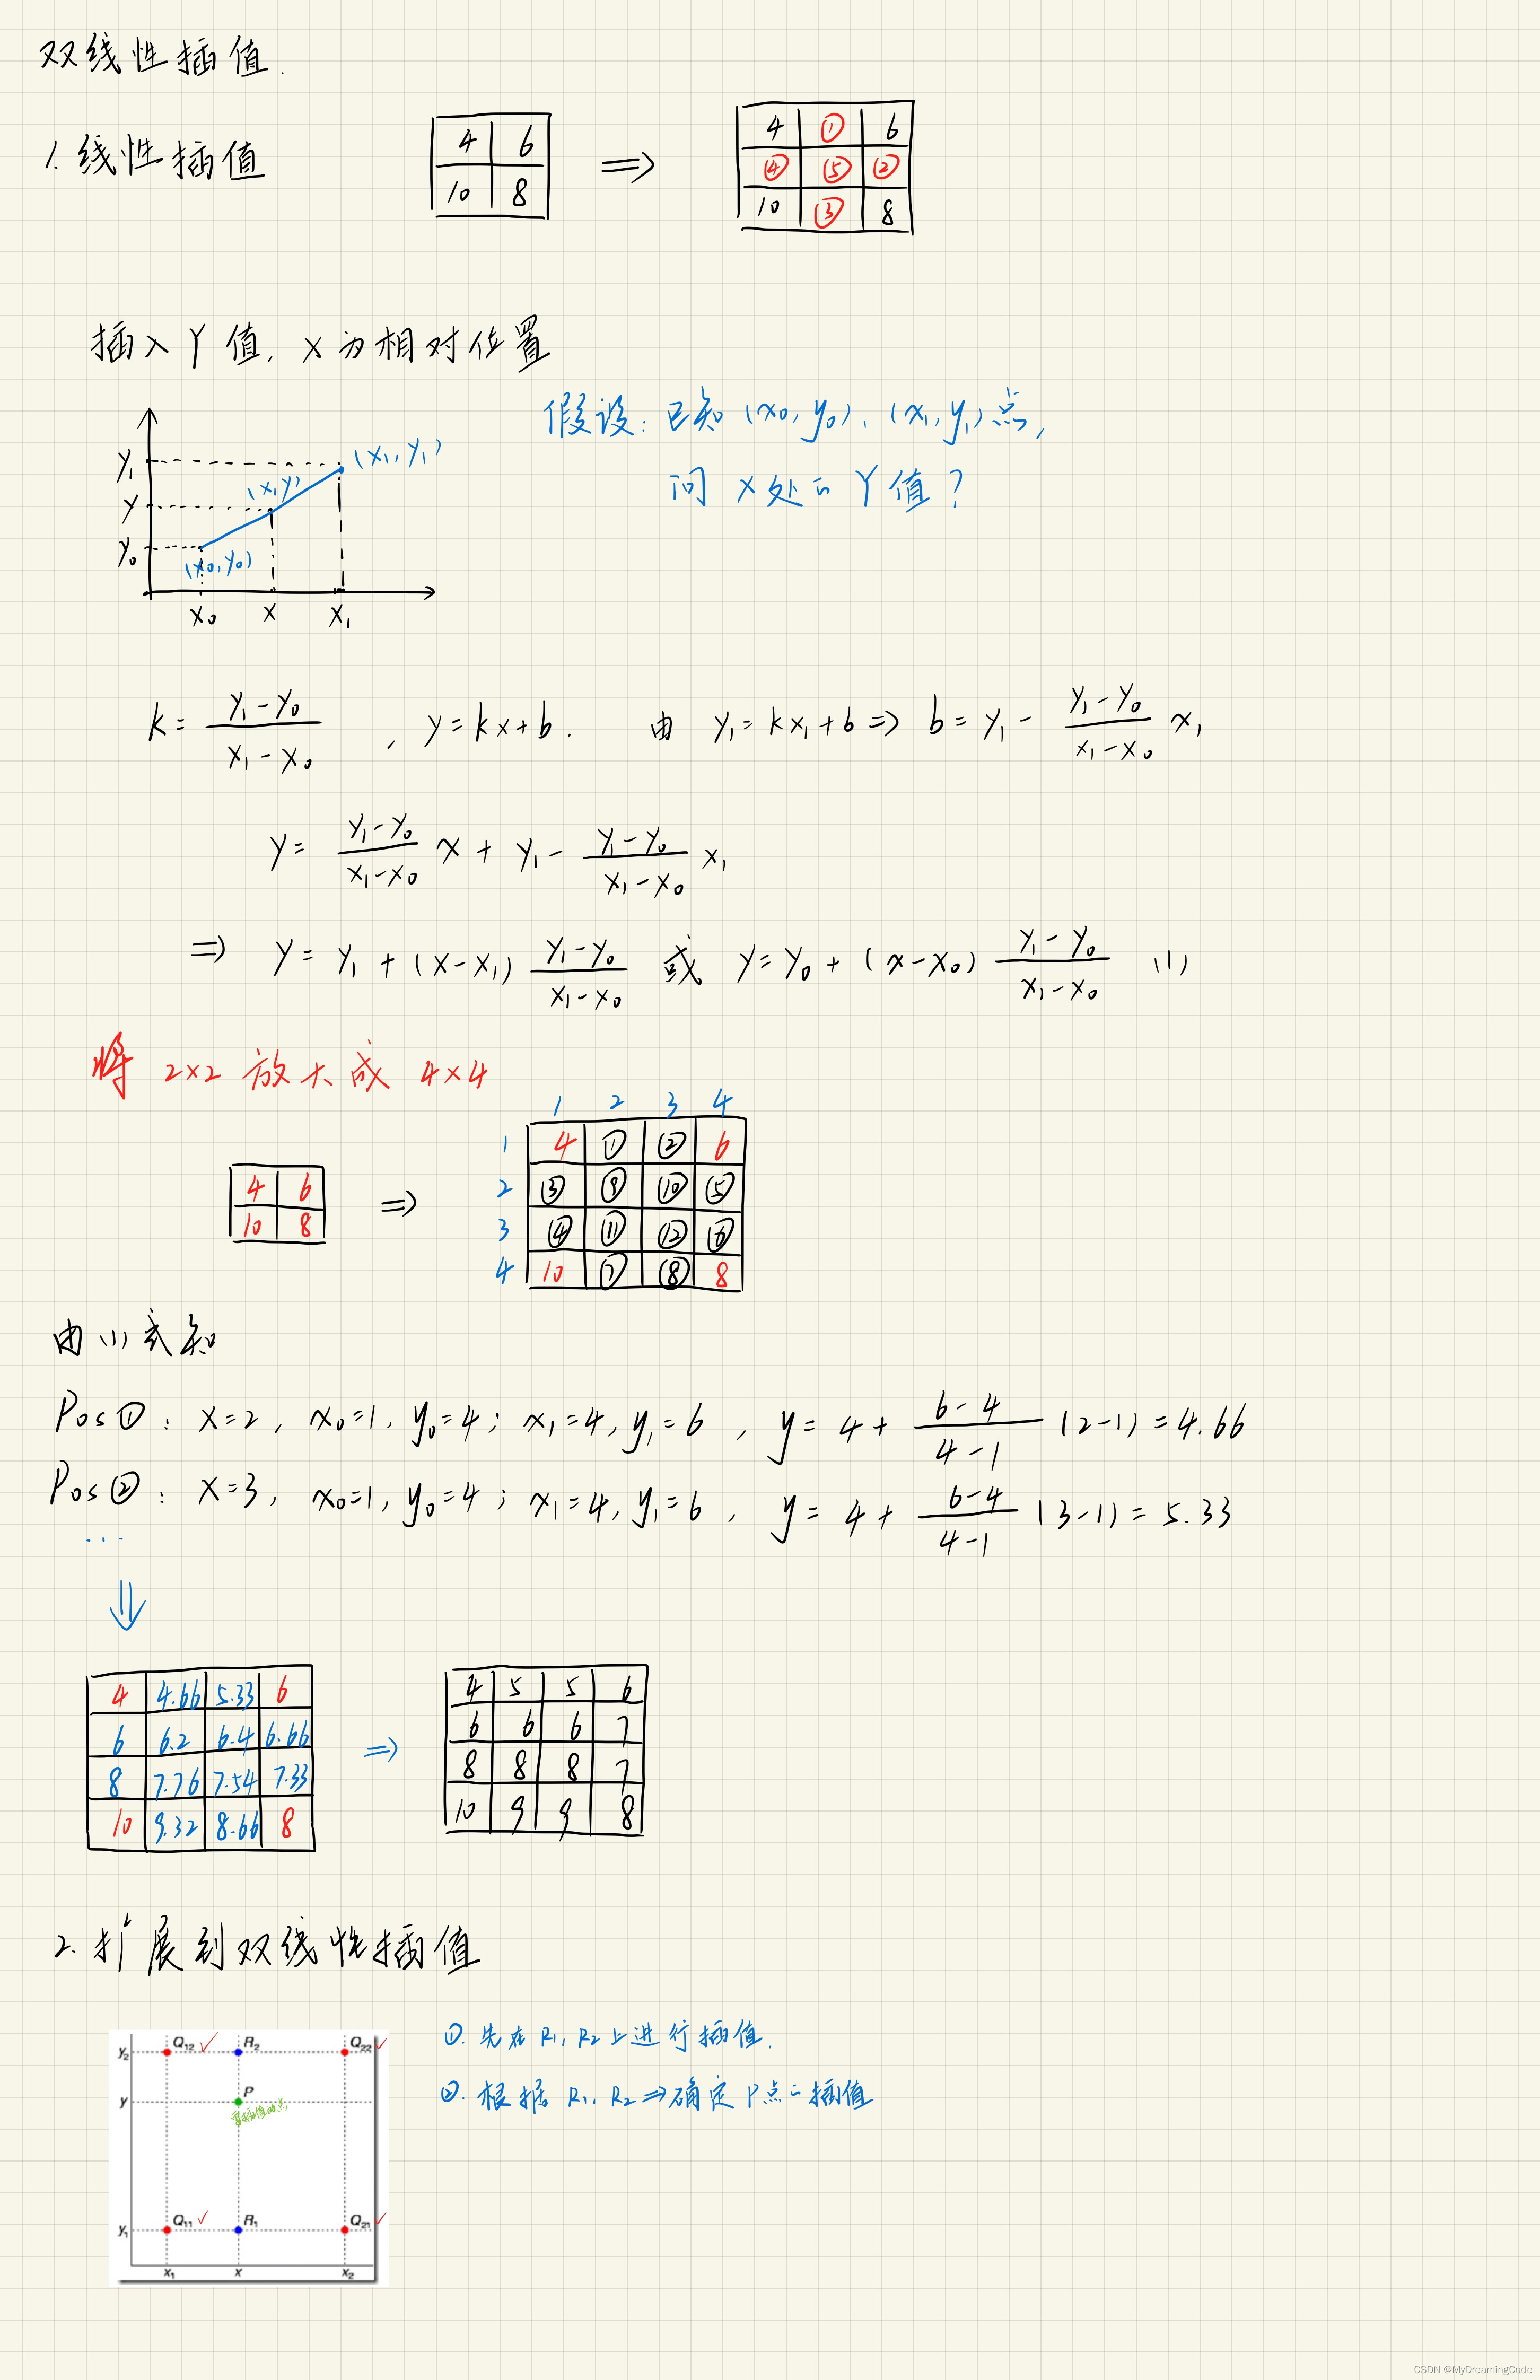 双线性插值.
1. 线性插值
4 6 ⇒ 4 ① 6
10 8 ④ ⑤ ②
10 ③ 8
插入Y值, X为相对位置
假设: 已知 (x₀, y₀), (x₁, y₁)点,
问 X处的Y值?
y₁ (x₁, y₁)
y (x, y)
y₀ (x₀, y₀)
x₀ x x₁
k = (y₁-y₀)/(x₁-x₀) , y = kx+b. 由 y₁ = kx₁+b ⇒ b = y₁ - (y₁-y₀)/(x₁-x₀) x₁
y = (y₁-y₀)/(x₁-x₀) x + y₁ - (y₁-y₀)/(x₁-x₀) x₁
⇒ y = y₁ + (x-x₁) (y₁-y₀)/(x₁-x₀) 或 y = y₀ + (x-x₀) (y₁-y₀)/(x₁-x₀) (1)
将 2×2 放大成 4×4
1 2 3 4
1 4 ① ② 6
4 6 ⇒ 2 ③ ⑨ ⑩ ⑤
10 8 3 ④ ⑪ ⑫ ⑥
4 10 ⑦ ⑧ 8
由(1)式知
Pos①: x=2, x₀=1, y₀=4; x₁=4, y₁=6, y = 4 + (6-4)/(4-1) (2-1) = 4.66
Pos②: x=3, x₀=1, y₀=4; x₁=4, y₁=6, y = 4 + (6-4)/(4-1) (3-1) = 5.33
...
⇓
4 4.66 5.33 6 4 5 5 6
6 6.2 6.4 6.66 ⇒ 6 6 6 7
8 7.76 7.54 7.33 8 8 8 7
10 9.32 8.66 8 10 9 9 8
2. 扩展到双线性插值
y₂ Q₁₂ ✓ R₂ Q₂₂ ✓
y P
y₁ Q₁₁ ✓ R₁ Q₂₁ ✓
x₁ x x₂
①. 先在 R₁, R₂上进行插值.
②. 根据 R₁, R₂ ⇒ 确定P点的插值
CSDN @MyDreamingCode